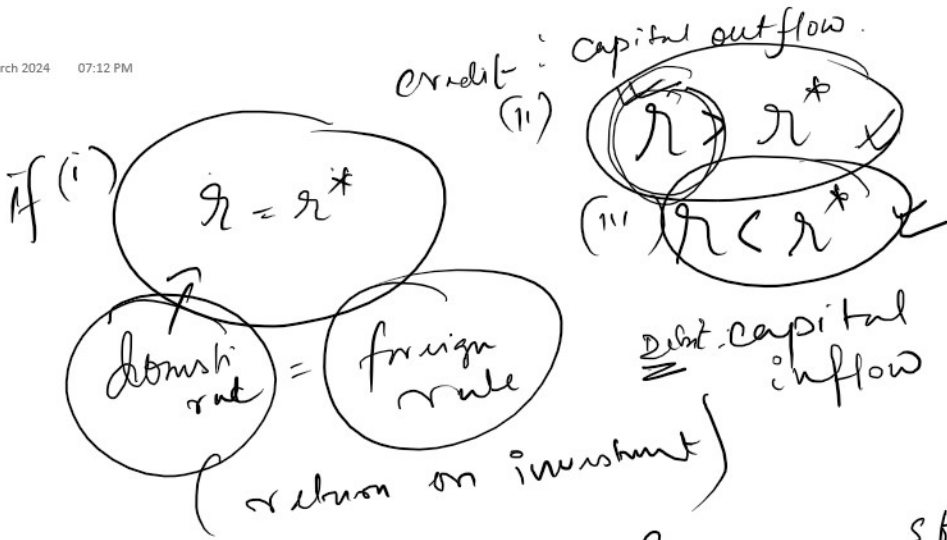 rch 2024 07:12 PM
credit : capital outflow.
(ii) r > r*
if (i) r = r*
(iii) r < r*
domsti rate = foreign rate
Debit. capital inflow
(return on investment)